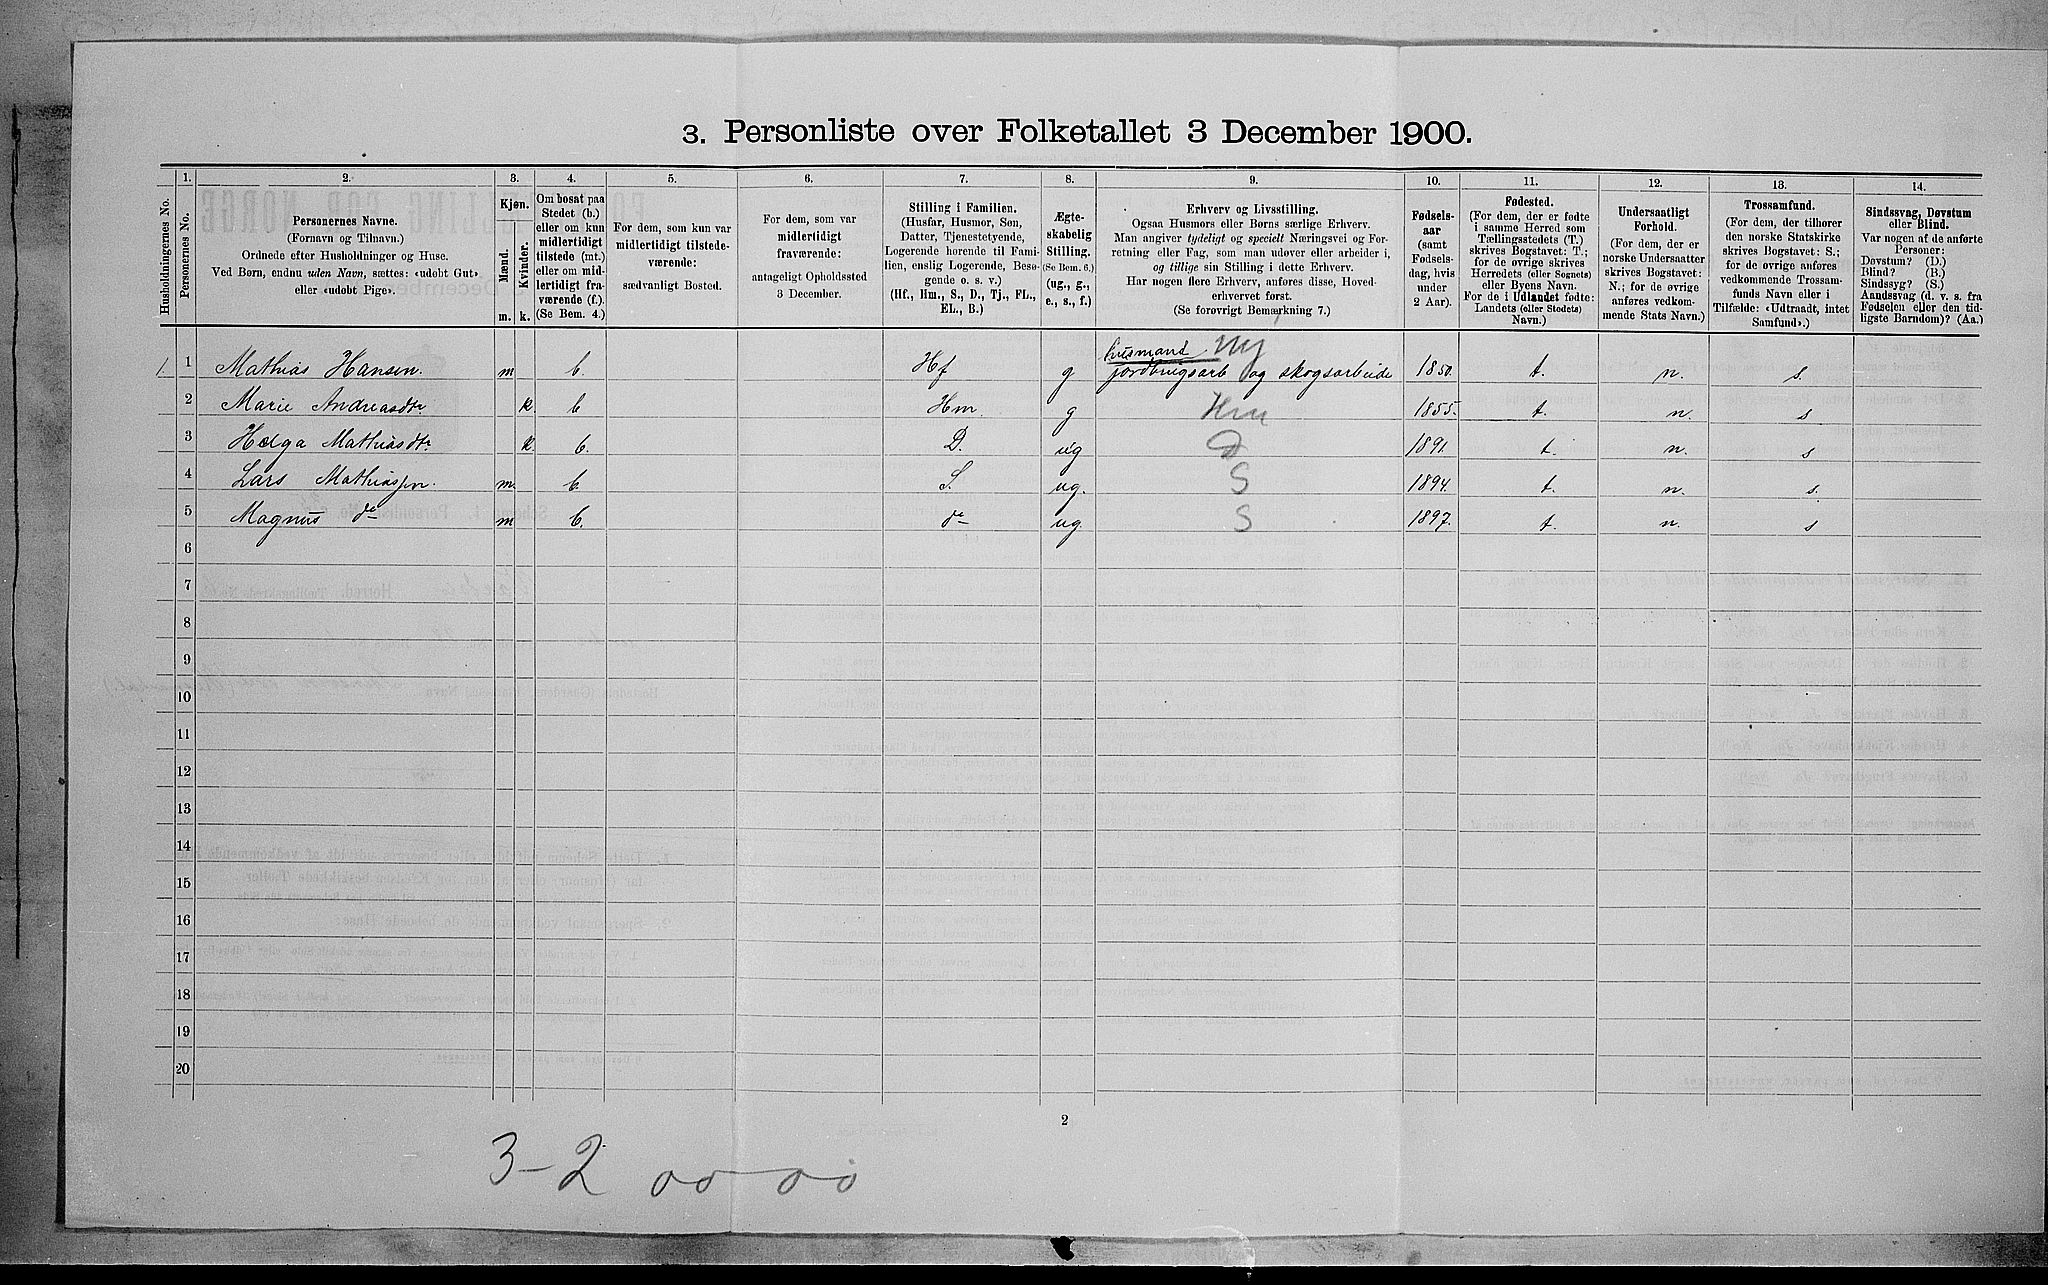 3. Personliste over Folketallet 3 December 1900.
Husholdningernes No.
1.
Personernes No.
2.
Personernes Navne.
(Fornavn og Tilnavn.)
Ordnede efter Husholdninger og Huse.
Ved Børn, endnu uden Navn, sættes: «udøbt Gut»
eller «udøbt Pige».
3.
Kjøn.
Mænd.
Kvinder.
m. k.
4.
Om bosat paa
Stedet (b.)
eller om kun
midlertidigt
tilstede (mt.)
eller om mid-
lertidigt fra-
værende (f.).
(Se Bem. 4.)
5.
For dem, som kun var
midlertidigt tilstede-
værende:
sædvanligt Bosted.
6.
For dem, som var
midlertidigt
fraværende:
antageligt Opholdssted
3 December.
7.
Stilling i Familien.
(Husfar, Husmor, Søn,
Datter, Tjenestetyende,
Logerende hørende til Fami-
lien, enslig Logerende, Besø-
gende o. s. v.)
(Hf., Hm., S., D., Tj., FL.,
EL., B.)
8.
Ægte-
skabelig
Stilling.
(Se Bem. 6.)
(ug., g.,
e., s., f.)
9.
Erhverv og Livsstilling.
Ogsaa Husmors eller Børns særlige Erhverv.
Man angiver tydeligt og specielt Næringsvei og For-
retning eller Fag, som man udøver eller arbeider i,
og tillige sin Stilling i dette Erhverv.
Har nogen flere Erhverv, anføres disse, Hoved-
erhvervet først.
(Se forøvrigt Bemærkning 7.)
10.
Fødsels-
aar
(samt
Fødsels-
dag, hvis
under
2 Aar).
11.
Fødested.
(For dem, der er fødte
i samme Herred som
Tællingsstedets (T.)
skrives Bogstavet: T.;
for de øvrige skrives
Herredets (eller Sognets)
eller Byens Navn.
For de i Udlandet fødte:
Landets (eller Stedets)
Navn.)
12.
Undersaatligt
Forhold.
(For dem, der er
norske Undersaatter
skrives Bogstavet:
N.; for de øvrige
anføres vedkom-
mende Stats Navn.)
13.
Trossamfund.
(For dem, der tilhører
den norske Statskirke
skrives Bogstavet: S.;
for de øvrige anføres
vedkommende Trossam-
funds Navn eller i
Tilfælde: «Udtraadt, intet
Samfund».)
14.
Sindssvag, Døvstum
eller Blind.
Var nogen af de anførte
Personer:
Døvstum? (D.)
Blind? (B.)
Sindssyg? (S.)
Aandssvag (d. v. s. fra
Fødselen eller den tid-
ligste Barndom)? (Aa.)
husmand
1. 1 Mathias Hansen. m b. Hf g jordbrugsarb og skogsarbeide 1850. t. n. s.
2 Marie Andreasdtr k. b Hm. g Hm 1855. t. n. s
3 Helga Mathiasdtr. k. b. D. ug D 1891. t. n. s
4 Lars Mathiassen. m. b. S. ug. S 1894. t. n. s.
5 Magnus do m b. do ug. S 1897. t. n. s
6
7
8
9
10
11
12
13
14
15
16
17
18
19
20
2
3-2 00-00